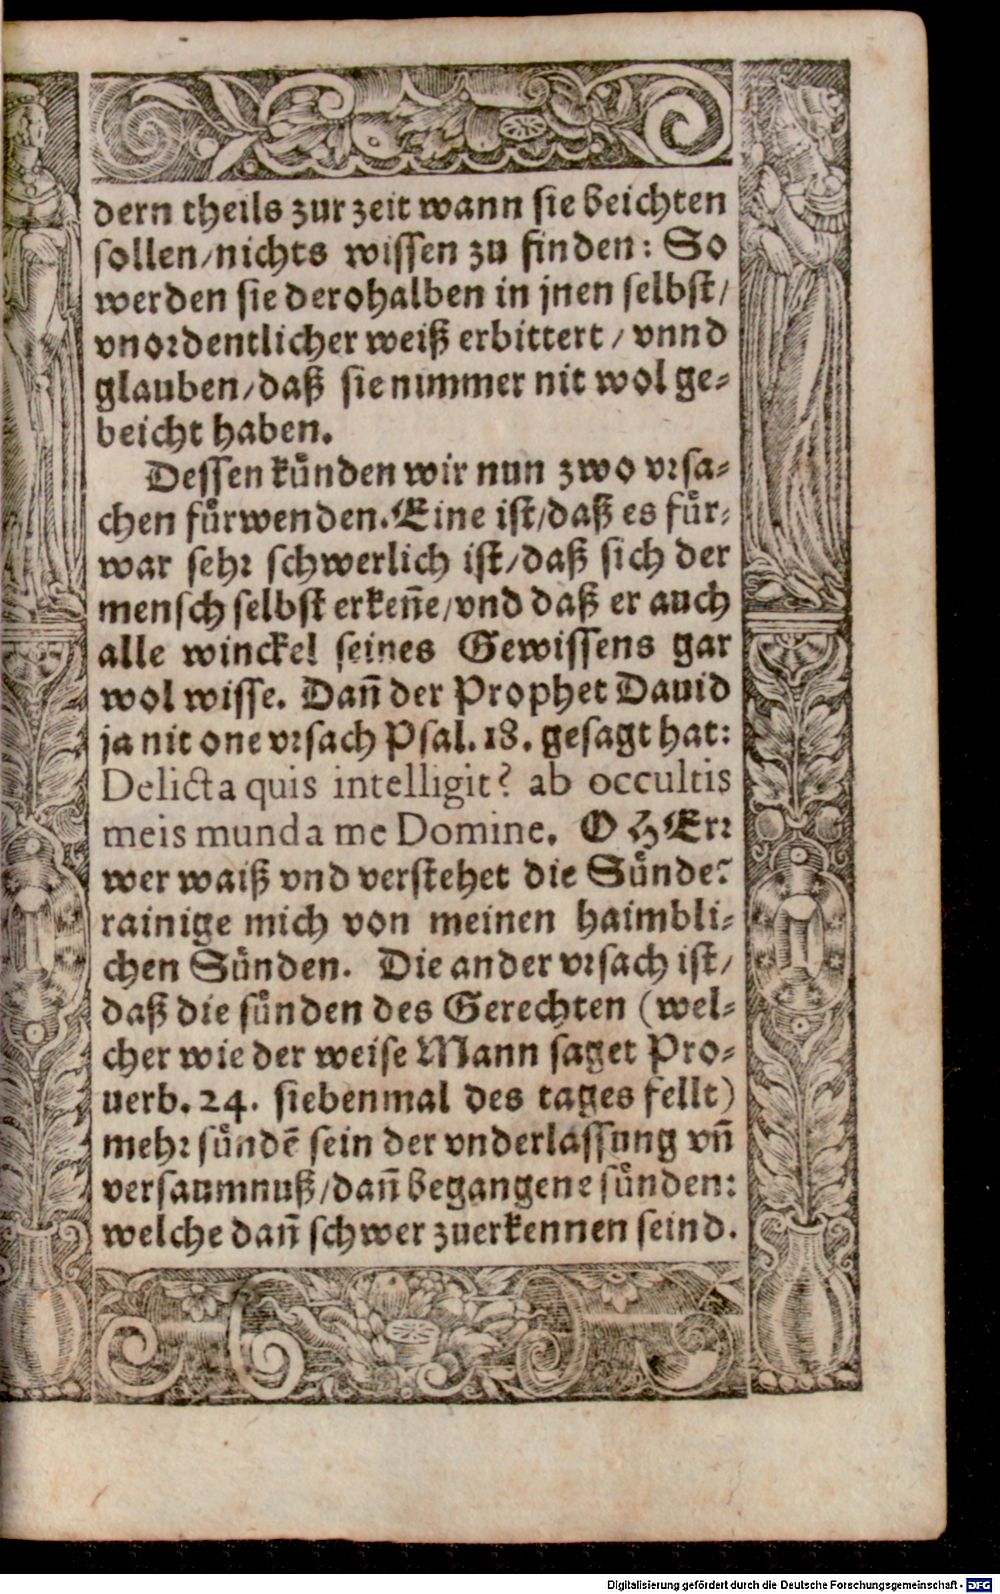 dern theils zur zeit wann sie beichten
sollen/nichts wissen zu finden: So
werden sie derohalben in jnen selbst/
vnordentlicher weiß erbittert/ vnnd
glauben/daß sie nimmer nit wol ge-
beicht haben.
Dessen kuͤnden wir nun zwo vrsa-
chen fuͤrwenden. Eine ist/daß es fuͤr-
war sehr schwerlich ist/daß sich der
mensch selbst erkeñe/vnd daß er auch
alle winckel seines Gewissens gar
wol wisse. Dañ der Prophet Dauid
ja nit one vrsach Psal. 18. gesagt hat:
Delicta quis intelligit? ab occultis
meis munda me Domine. O HErr
wer waiß vnd verstehet die Suͤnde?
rainige mich von meinen haimbli-
chen Suͤnden. Die ander vrsach ist/
daß die suͤnden des Gerechten (wel-
cher wie der weise Mann saget Pro-
uerb. 24. siebenmal des tages fellt)
mehr suͤndē sein der vnderlassung vñ
versaumnuß/dañ begangene suͤnden:
welche dañ schwer zuerkennen seind.
Digitalisierung gefördert durch die Deutsche Forschungsgemeinschaft - DFG